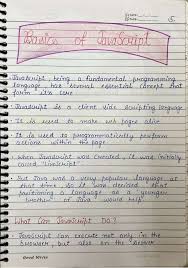 Basics of JavaScript
JavaScript being a fundamental programming
language has several essential concept that
form its core
JavaScript is a client side scripting language
It is used to make web pages alive
It is used to programmatically perform
actions within the page
When JavaScript was created, it was initially
called "LiveScript"
But Java was a very popular language at
that time so it was decided that
positioning a language as a "younger
brother" of Java would help
What Can JavaScript Do?
JavaScript can execute not only in the
browser, but also on the server
Good Write